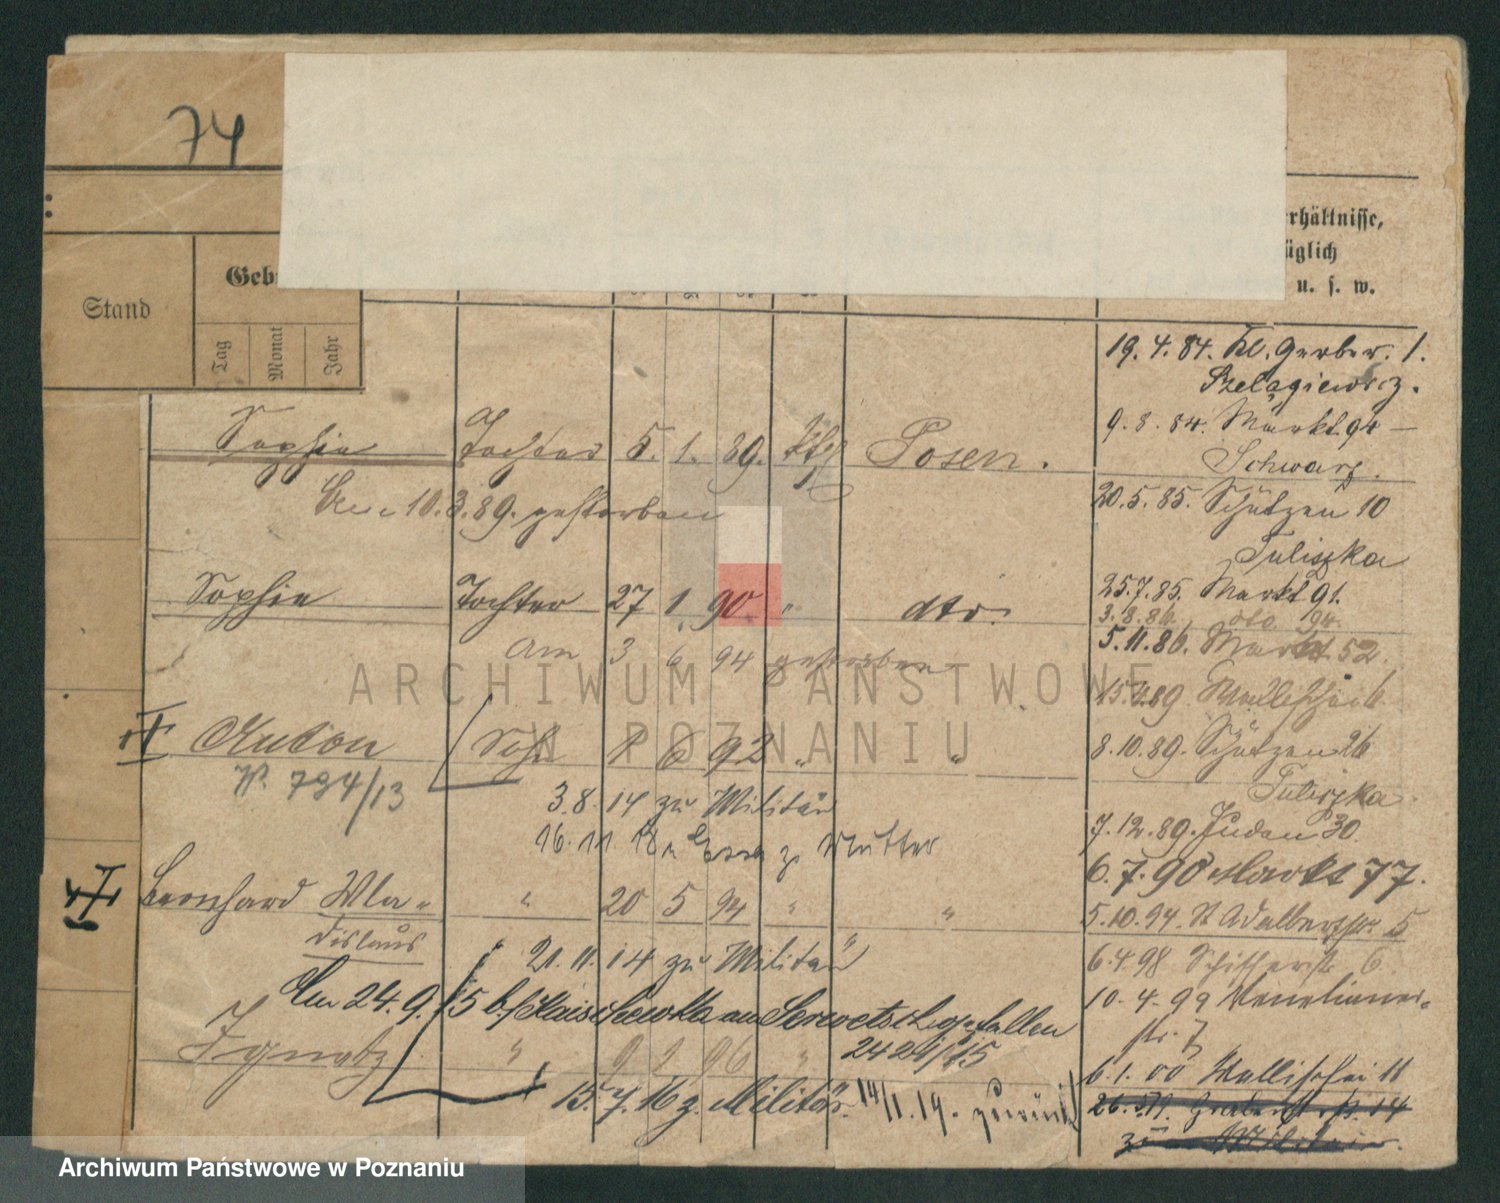 74
erhältnisse,
üglich
u. s. w.
Stand
Geb
Tag
Monat
Jahr
19. 4. 84. Kl. Gerber. 1.
Szelagiewicz.
9. 8. 84. Markt 94 —
Schwarz.
Sophie Tochter 5. 1. 89. kth Posen.
Am 10. 3. 89. gestorben
20. 5. 85. Schützen 10
Tuliszka
25. 7. 85. Markt 91.
Sophie Tochter 27 1. 90 " dto.
3. 8. 86. dto 94.
5. 11. 86. Markt 52.
am 3 6 94 gestorben
89 Wallischei 6
Anton Sohn 1 6 92 " "
8. 10. 89. Schützen 26
Tuliszka
794/13
3. 8. 14 zu Militär
7. 12. 89. Juden 30
16. 11. 18 z. Mutter
6. 7. 90 Markt 77.
Leonhard Wla- " 20 5 94 " "
dislaus
5. 10. 94. St Adalbertstr. 5
21. 11. 14 zu Militär
6 4 98 Schifferstr 6
Am 24. 9. 15 b. gefallen
10. 4. 99 Venetianer-
str. 7
24 24/1 15
Ignatz " 9 1 96 "
6. 1. 00 Wallischei 11
15. 7. 16 z. Militär. 14/1. 19. zurück
26. 14
zu Militär.
ARCHIWUM PAŃSTWOWE
W POZNANIU
Archiwum Państwowe w Poznaniu